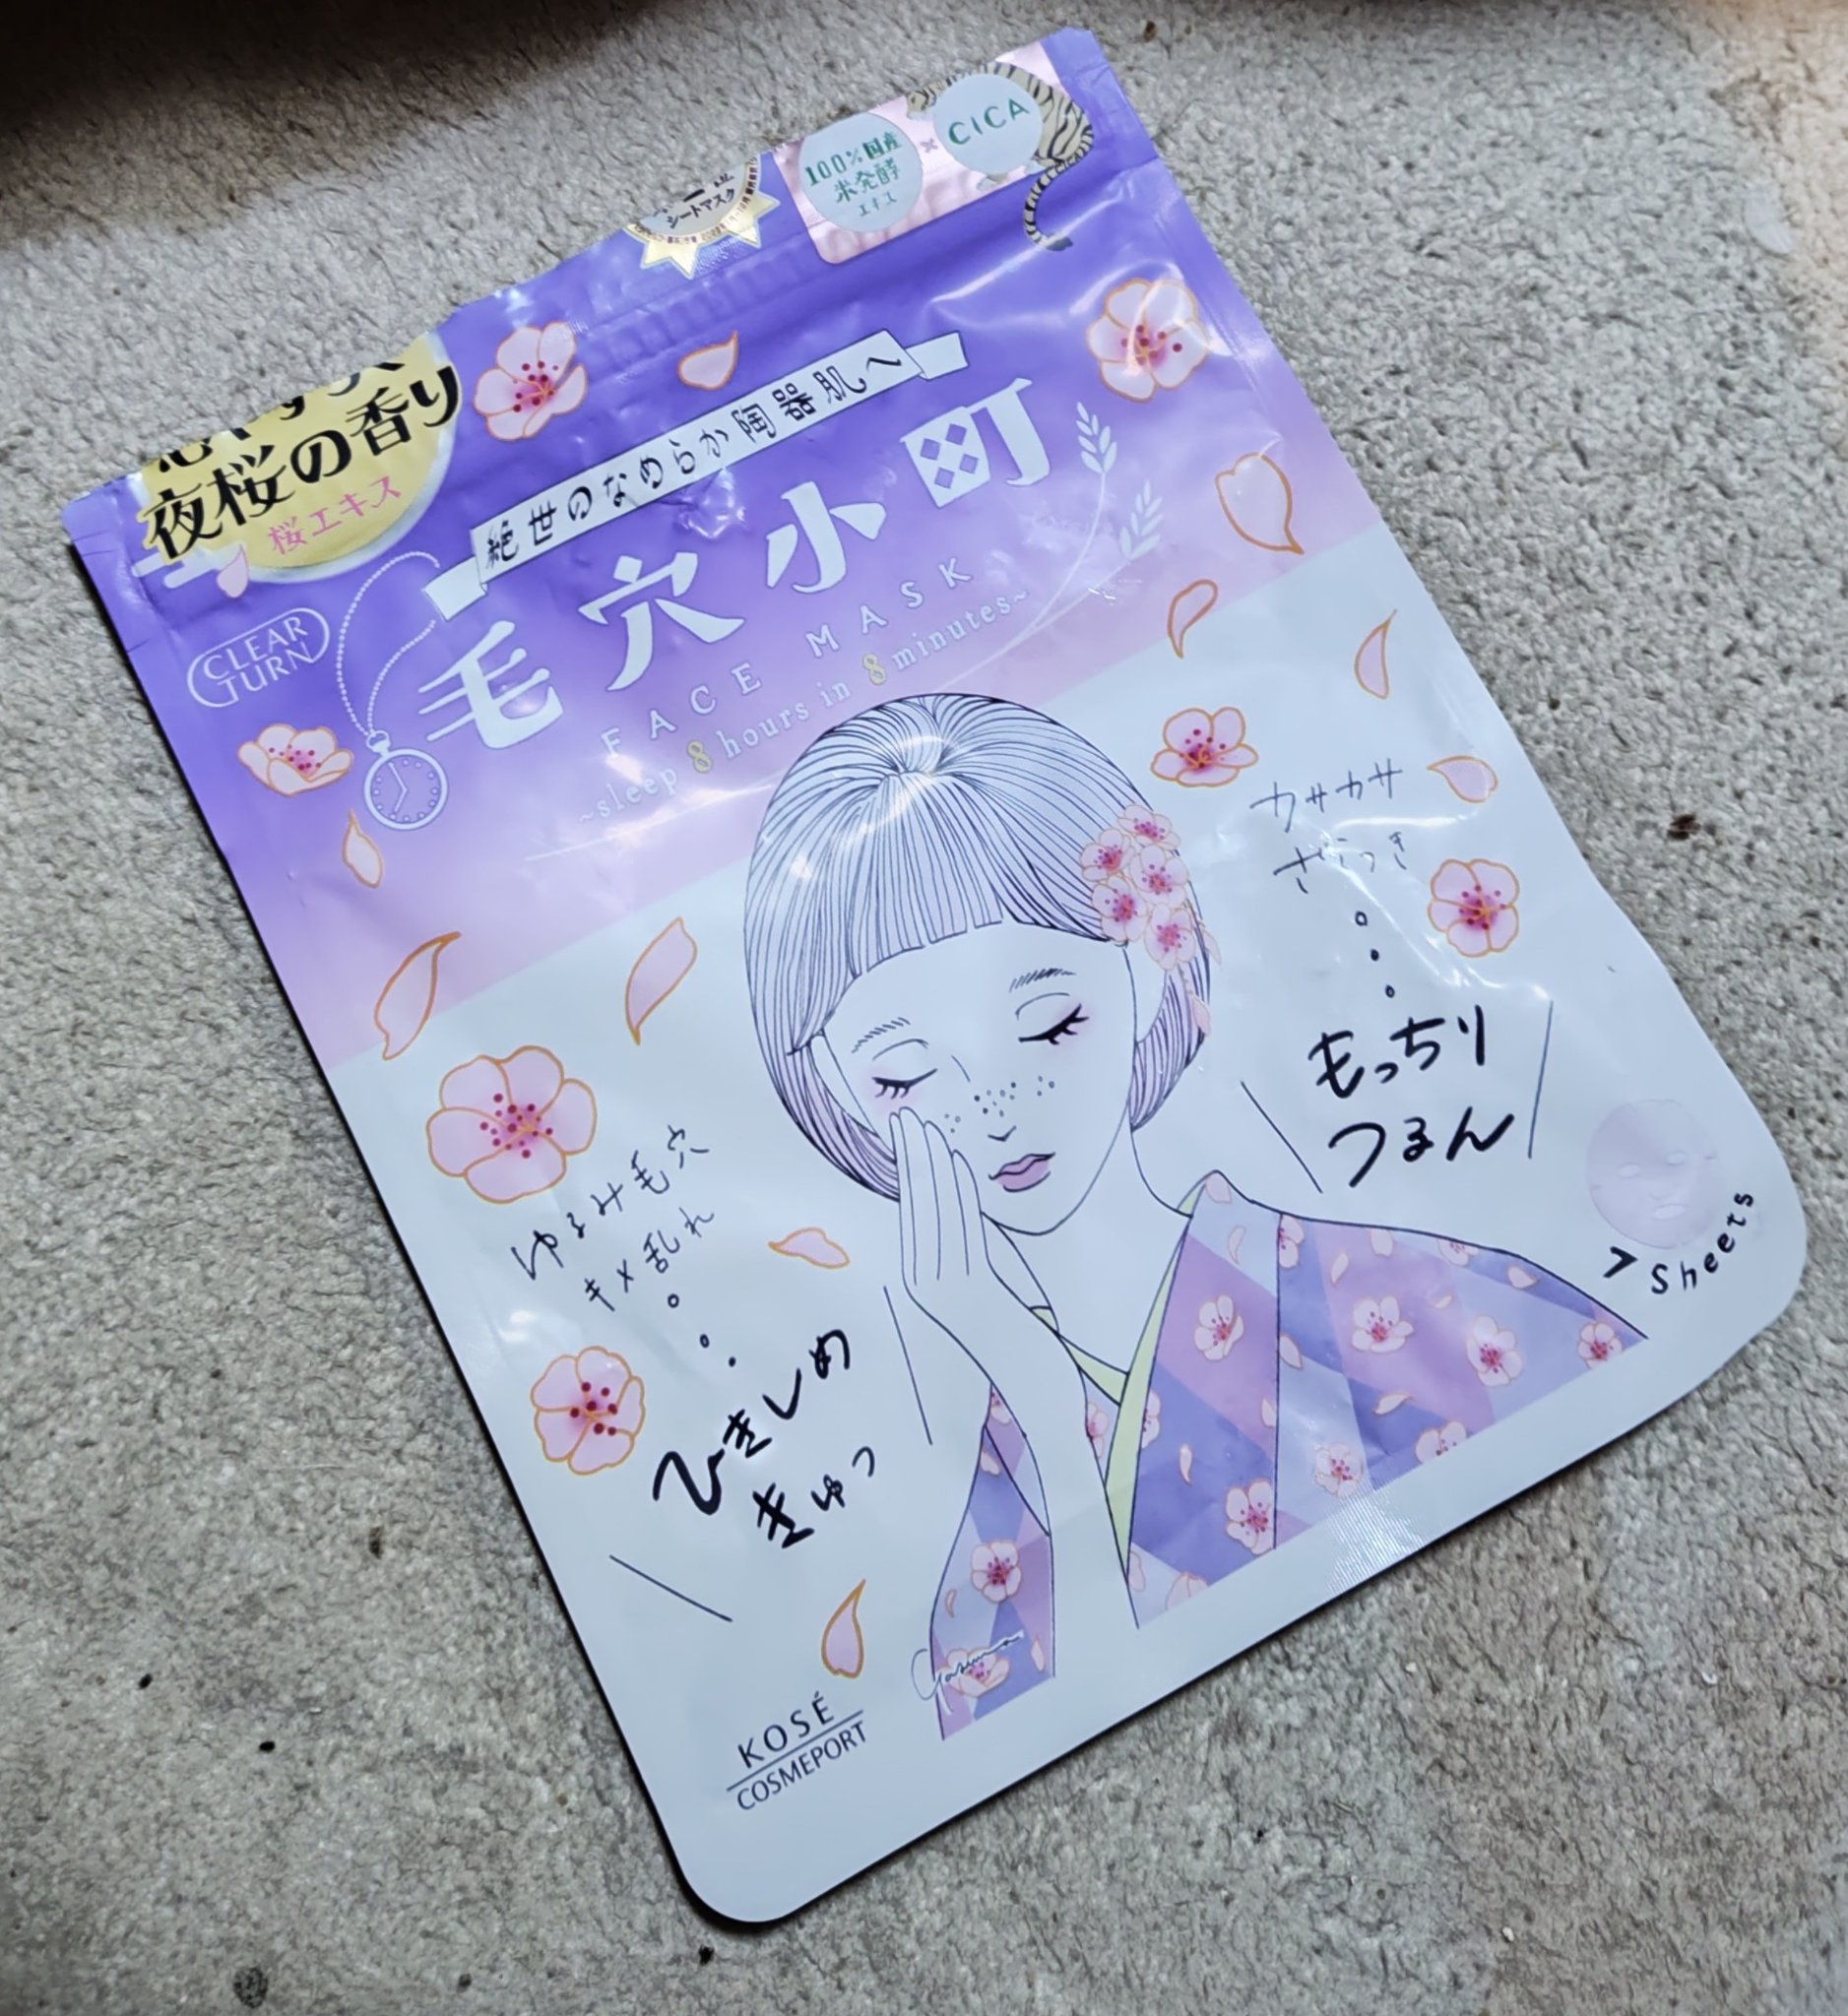 100%国産
米発酵
エキス
×
CICA
シートマスク
夜桜の香り
桜エキス
絶世のなめらか陶器肌へ
CLEAR
TURN
毛穴小町
FACE MASK
~sleep 8 hours in 8 minutes~
カサカサ
ざらつき
もっちり
つるん
ゆるみ毛穴
キメ乱れ
ひきしめ
きゅっ
7 Sheets
KOSÉ
COSMEPORT